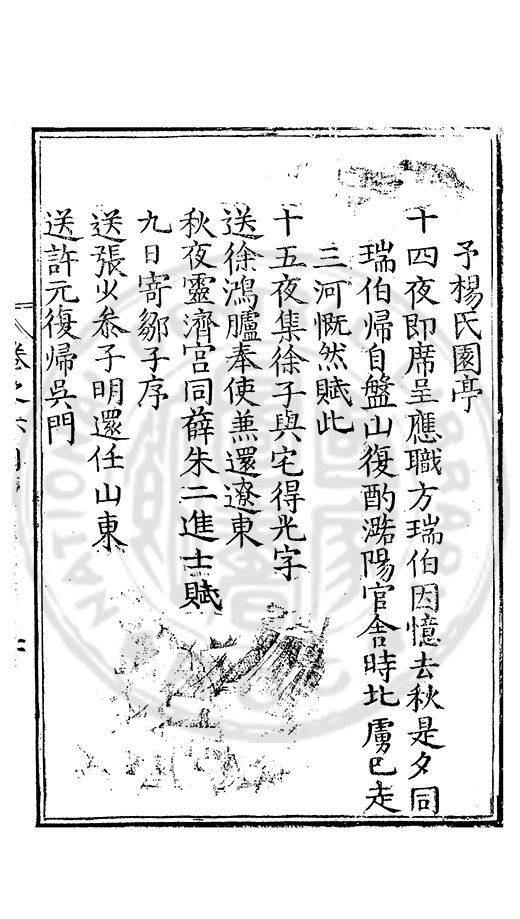 予楊氏園亭
十四夜即席呈應職方瑞伯因憶去秋是夕同
瑞伯帰自盤山復酌潞陽官舍時北虜已走
三河慨然賦此
十五夜集徐子與宅得光字
送徐鴻臚奉使兼還遼東
秋夜靈濟宮同薛朱二進士賦
九日寄鄒子序
送張少叅子明還任山東
送許元復帰吳門
卷之六目